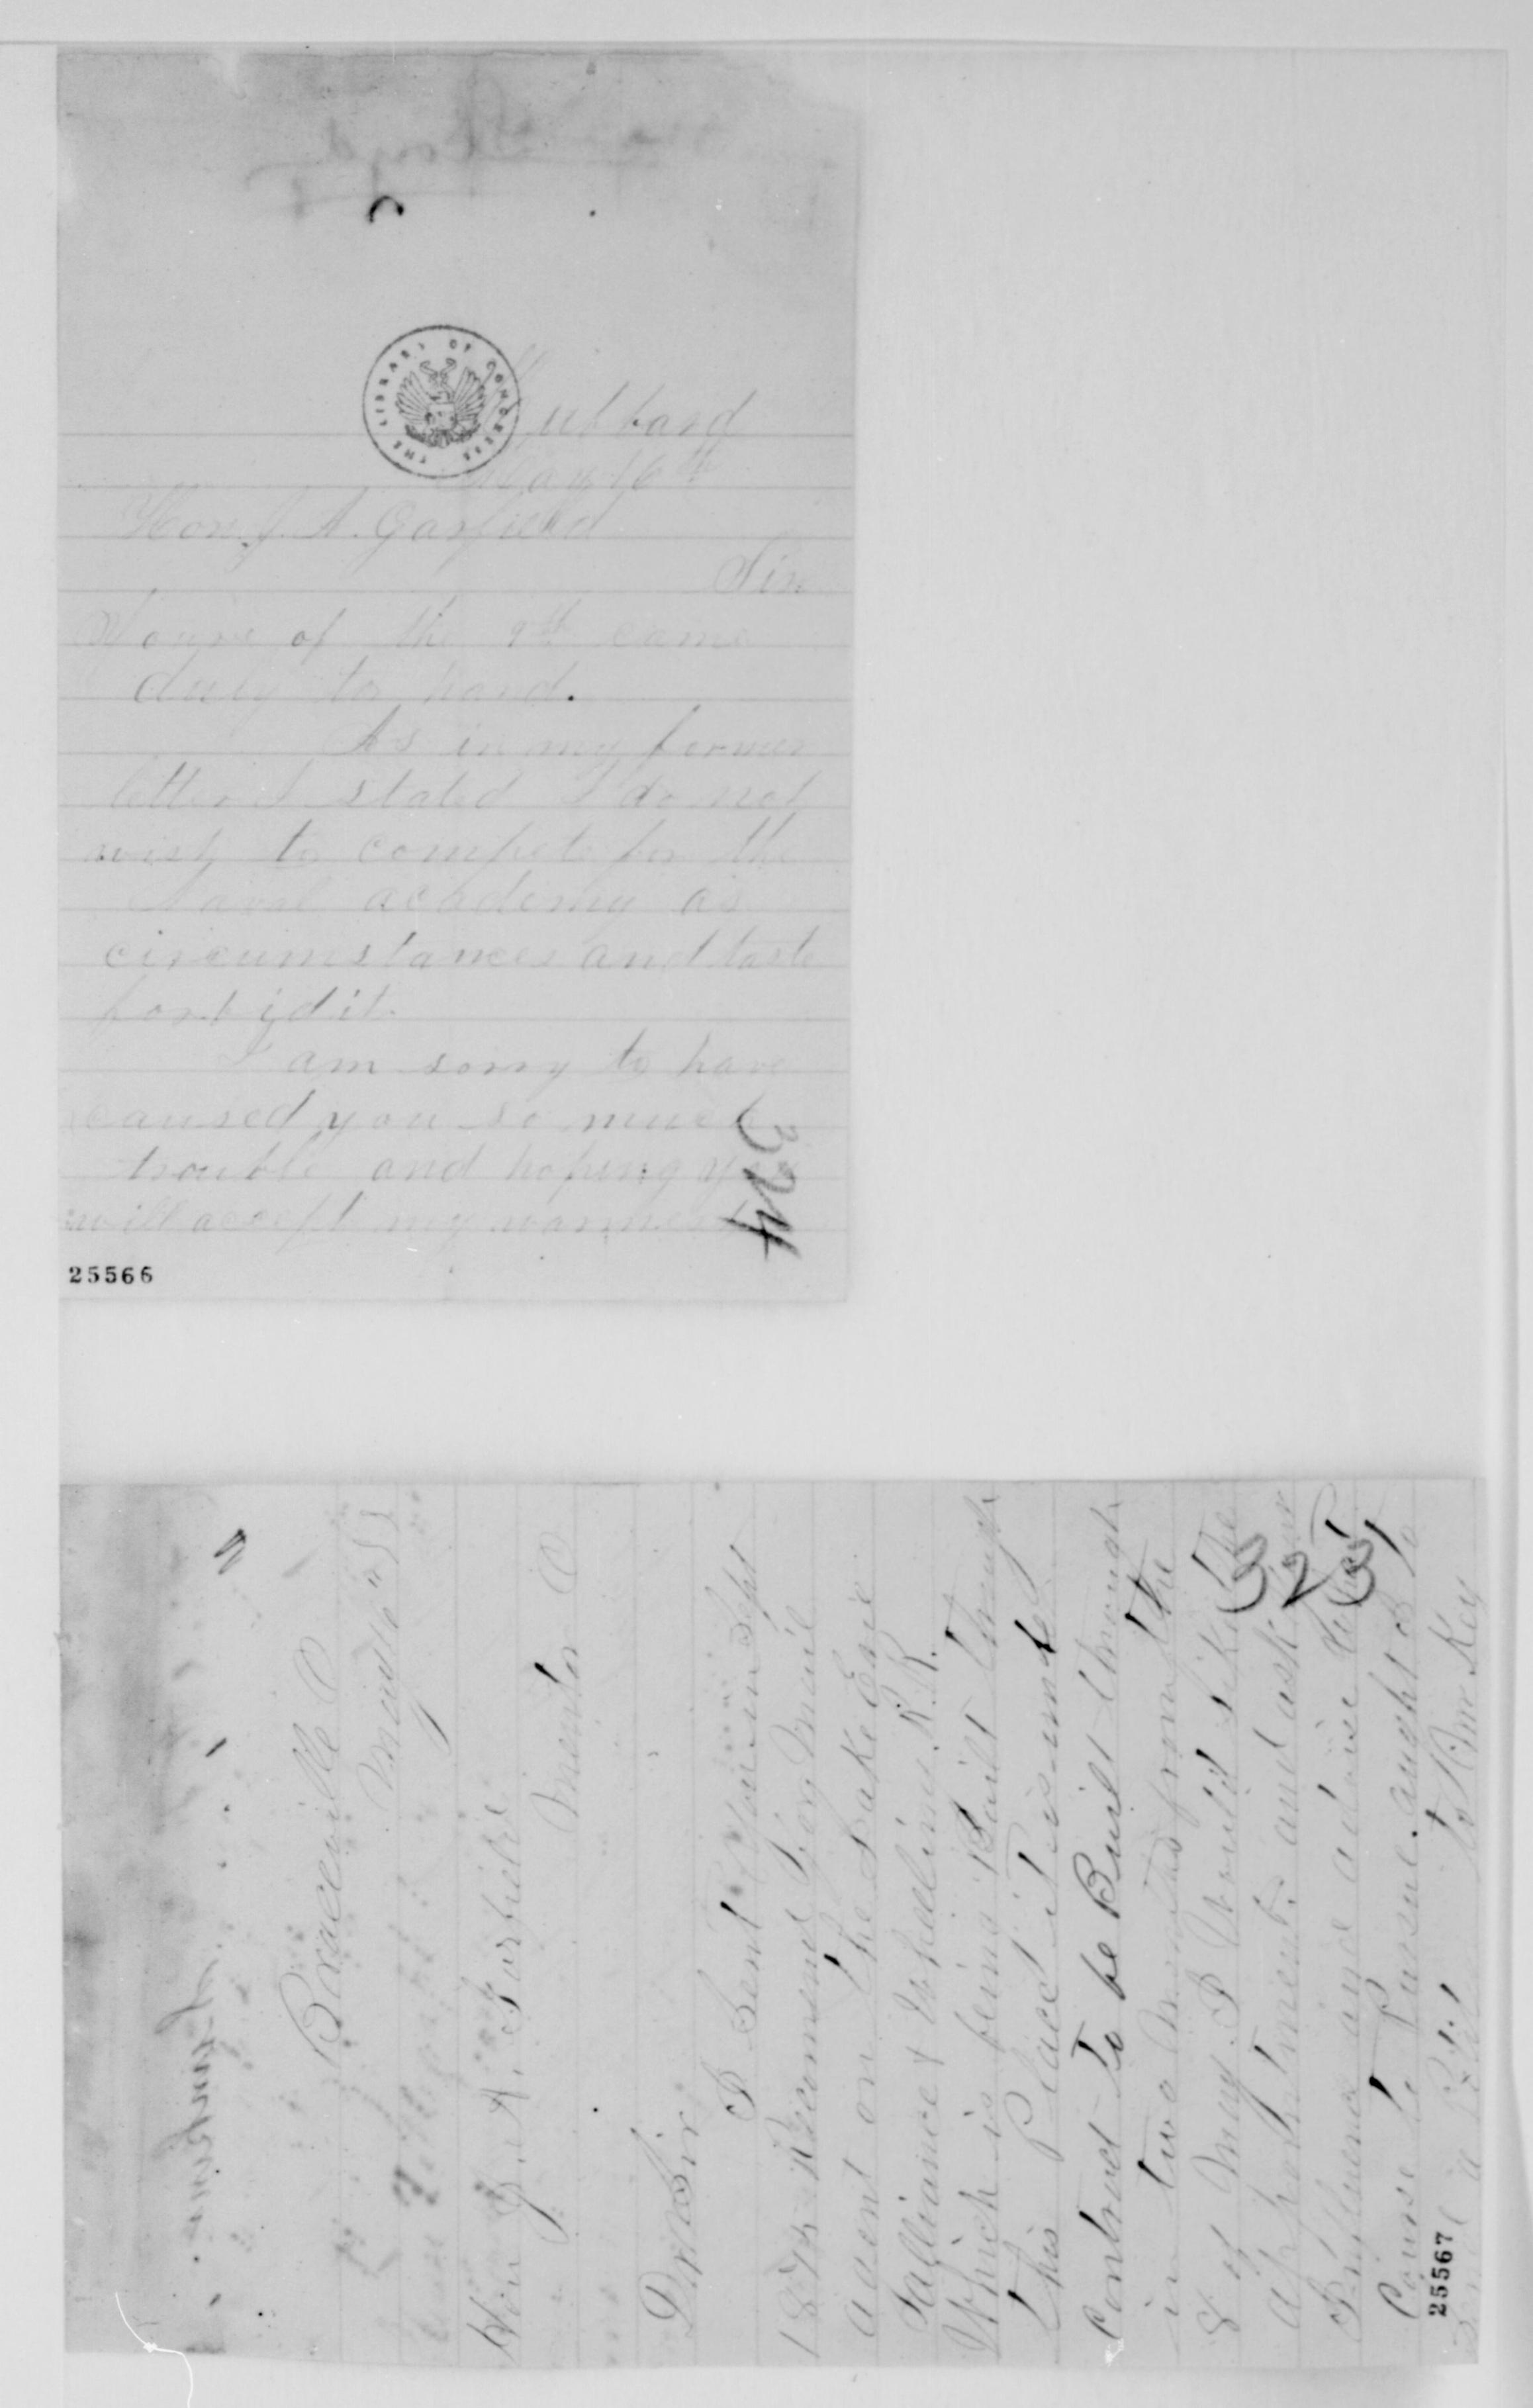 THE LIBRARY OF CONGRESS
Hubbard
May 16th
Hon. J. A. Garfield
Sir
Yours of the 9th came
duly to hand.
As in my former
letter I stated I do not
wish to compete for the
Naval academy as
circumstances and taste
forbid it.
I am sorry to have
caused you so much
trouble and hoping you
will accept my warmest
324
25566
Braceville O
May 16
Hon J. A. Garfield
Mentor O
Dear Sir
I Sent
1878 Recomend for Mail
agent on the Lake Erie
Alliance & Wheeling R.R.
Which is being Built through
this Place it is under
Contract To be Built through
in two months from the
8 of May. I Would like the
appointment. and ask your
Influence and advise
Course to Pursue. aught I to
to P.M. Key
325
25567